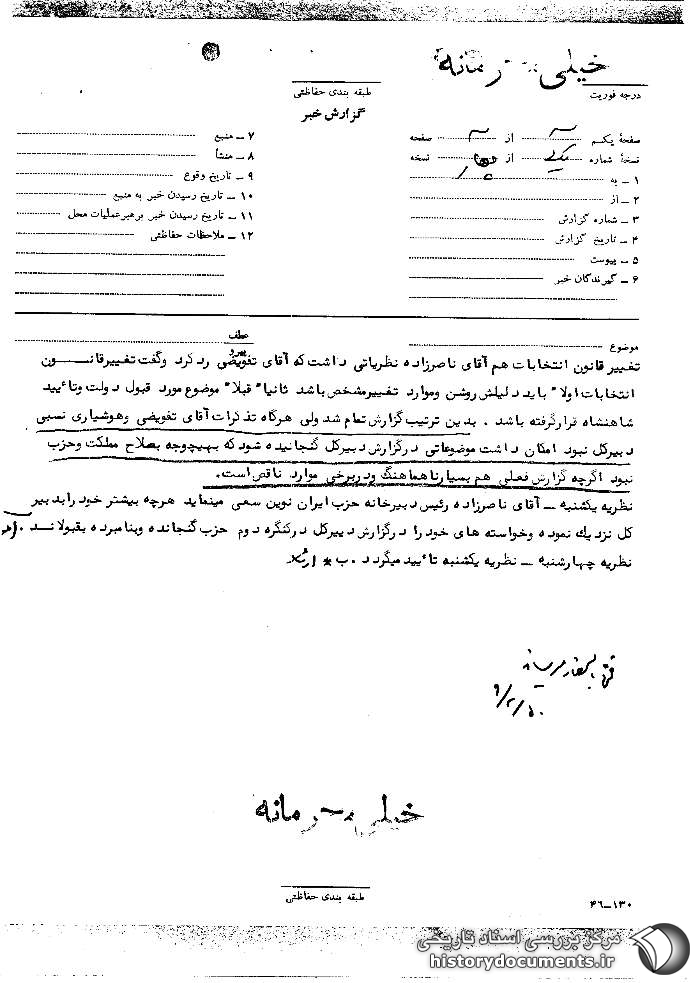 خیلی محرمانه
درجه فوریت
طبقه بندی حفاظتی
گزارش خبر
صفحهٔ یکم از صفحه
نسخهٔ شماره یکی از چهار نسخه
۱ ـ به
۲ ـ از
۳ ـ شماره گزارش
۴ ـ تاریخ گزارش
۵ ـ پیوست
۶ ـ گیرندگان خبر
۷ ـ منبع
۸ ـ منشأ
۹ ـ تاریخ وقوع
۱۰ ـ تاریخ رسیدن خبر به منبع
۱۱ ـ تاریخ رسیدن خبر برهبر عملیات محل
۱۲ ـ ملاحظات حفاظتی
موضوع
عطف
پیرو
تغییر قانون انتخابات هم آقای ناصرزاده نظریاتی داشت که آقای تفویضی رد کرد وگفت تغییر قانــــون
انتخابات اولا" باید دلیلش روشن وموارد تغییر مشخص باشد ثانیا" قبلا" موضوع مورد قبول دولت وتأیید
شاهنشاه قرار گرفته باشد . بدین ترتیب گزارش تمام شد ولی هرگاه تذکرات آقای تفویضی وهوشیاری نسبی
دبیرکل نبود امکان داشت موضوعاتی درگزارش دبیرکل گنجانیده شود که بهیچوجه بصلاح مملکت وحزب
نبود اگرچه گزارش فعلی هم بسیار ناهماهنگ ودربرخی موارد ناقص است.
نظریه یکشنبه ــ آقای ناصرزاده رئیس دبیرخانه حزب ایران نوین سعی مینماید هرچه بیشتر خود را بدبیر
کل نزدیك نموده وخواسته های خود را درگزارش دبیرکل درکنگره دوم حزب گنجانده وبنامبرده بقبولانــد .
نظریه چهارشنبه ــ نظریه یکشنبه تأیید میگردد .
۵۰/۲/۹
خیلی محرمانه
طبقه بندی حفاظتی
۴۶ــ۱۳۰
مرکز بررسی اسناد تاریخی
historydocuments.ir